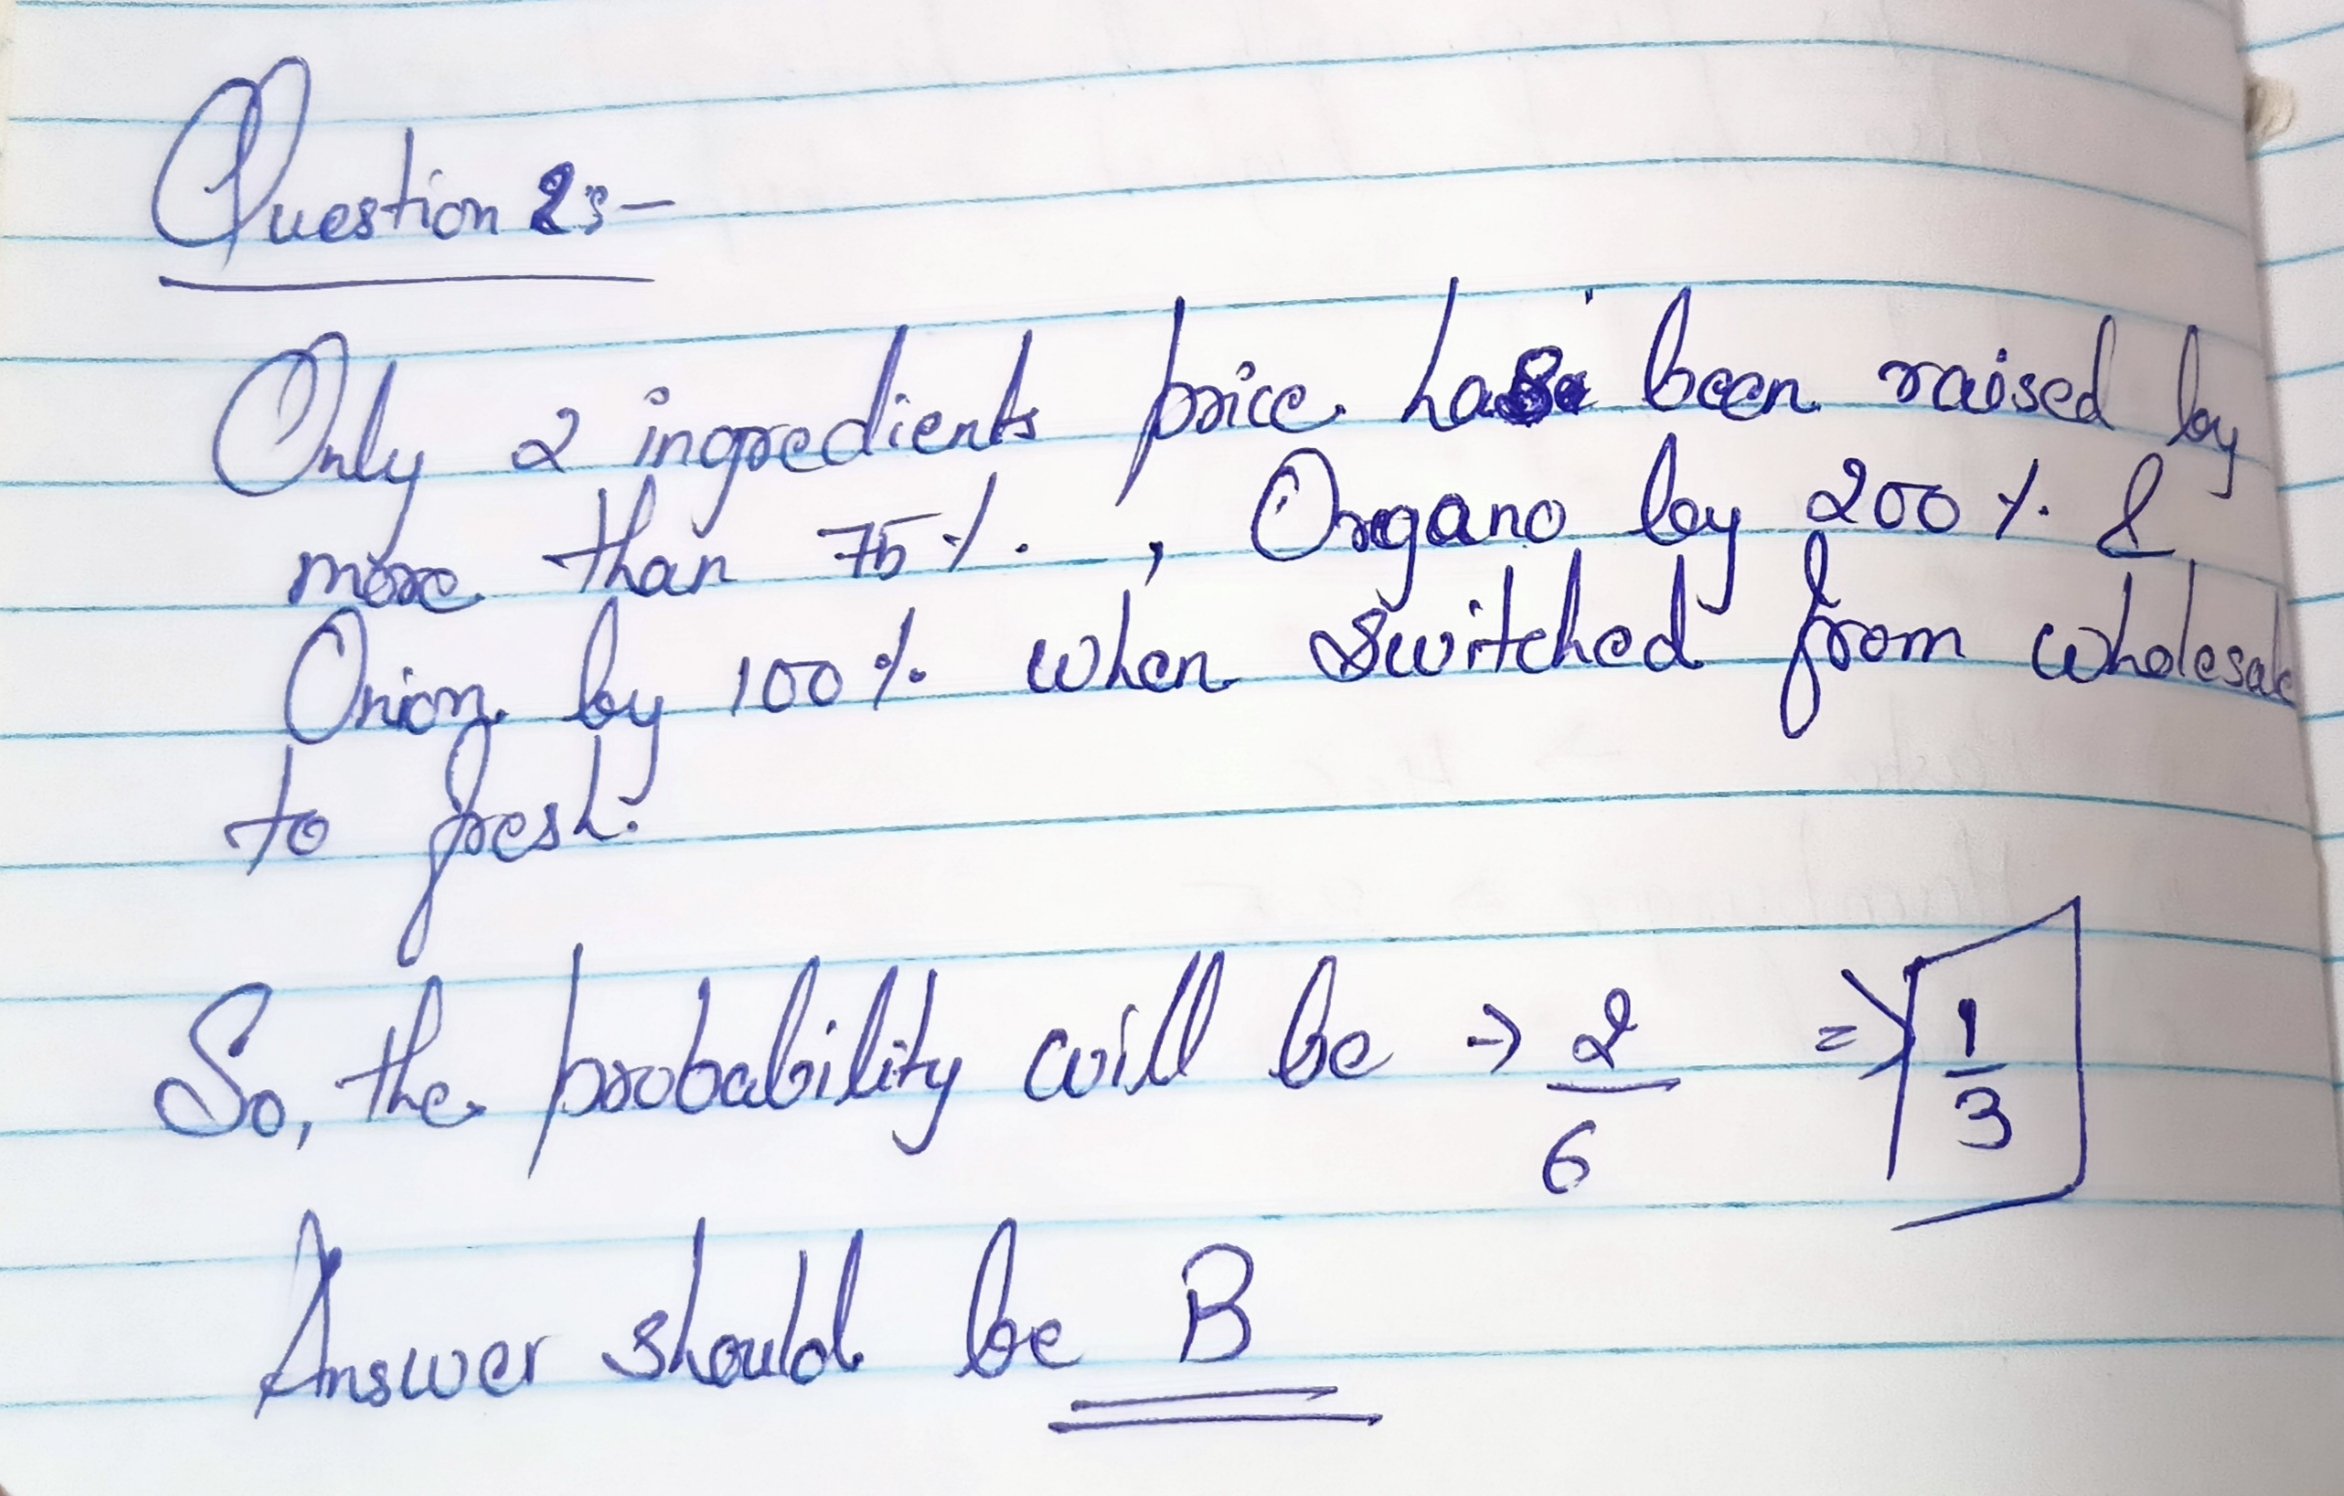 Question 2:-
Only 2 ingredients price has been raised by
more than 75%. , Oregano by 200% &
Onion by 100% when switched from wholesale
to fresh.
So, the probability will be → 2/6 => 1/3
Answer should be B